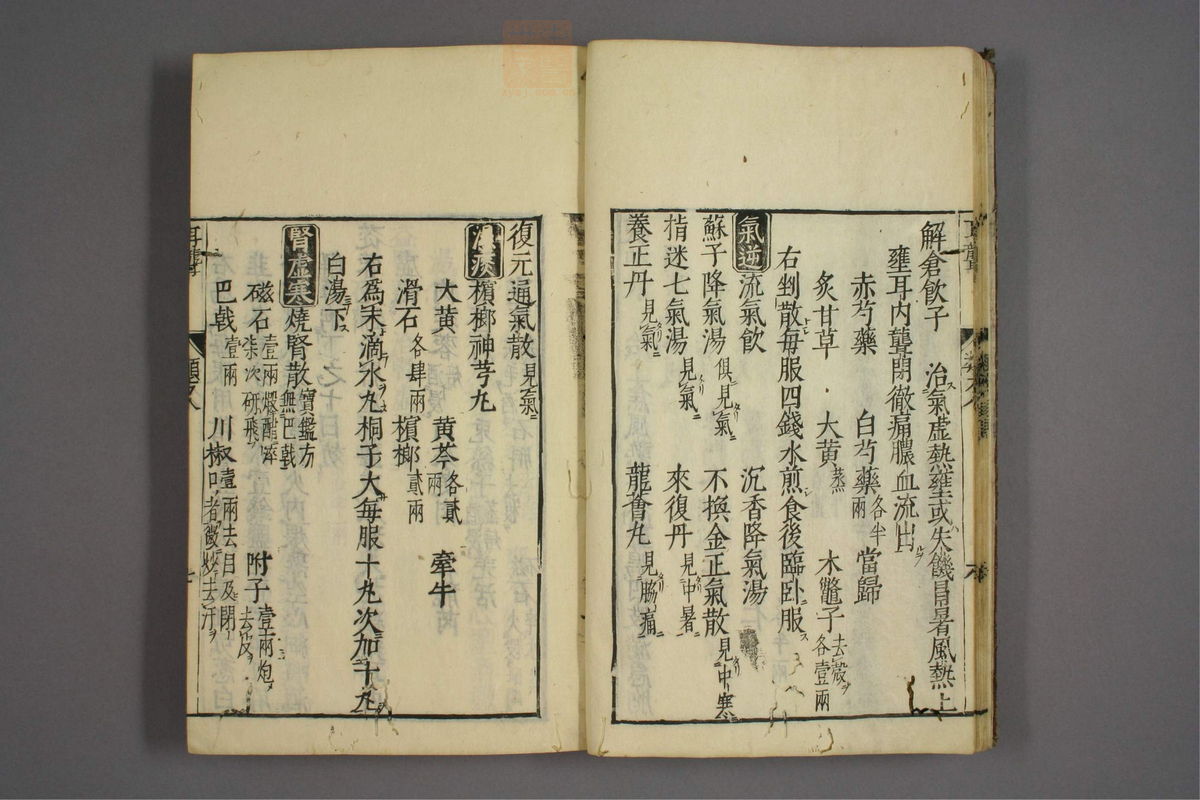 解倉飲子 治氣虛熱壅或失饑冒暑風熱上
壅耳內聾閉徹痛膿血流出
赤芍藥 白芍藥各半兩 當歸
炙甘草 大黃蒸 木鼈子去殼各壹兩
右剉散每服四錢水煎食後臨卧服
氣逆 流氣飲 沉香降氣湯
蘇子降氣湯俱見氣 不換金正氣散見中寒
指迷七氣湯見氣 來復丹見中暑
養正丹見氣 龍薈丸見脇痛
復元通氣散見氣
濕痰 檳榔神芎丸
大黃 黃芩各貳兩 牽牛
滑石各肆兩 檳榔貳兩
右爲末滴水丸桐子大每服十丸次加十丸
白湯下
腎虛寒 燒腎散寶鑑方無巴戟
磁石壹兩煆醋淬柒次研飛 附子壹兩炮去皮
巴戟壹兩 川椒壹兩去目及閉口者微炒去汗